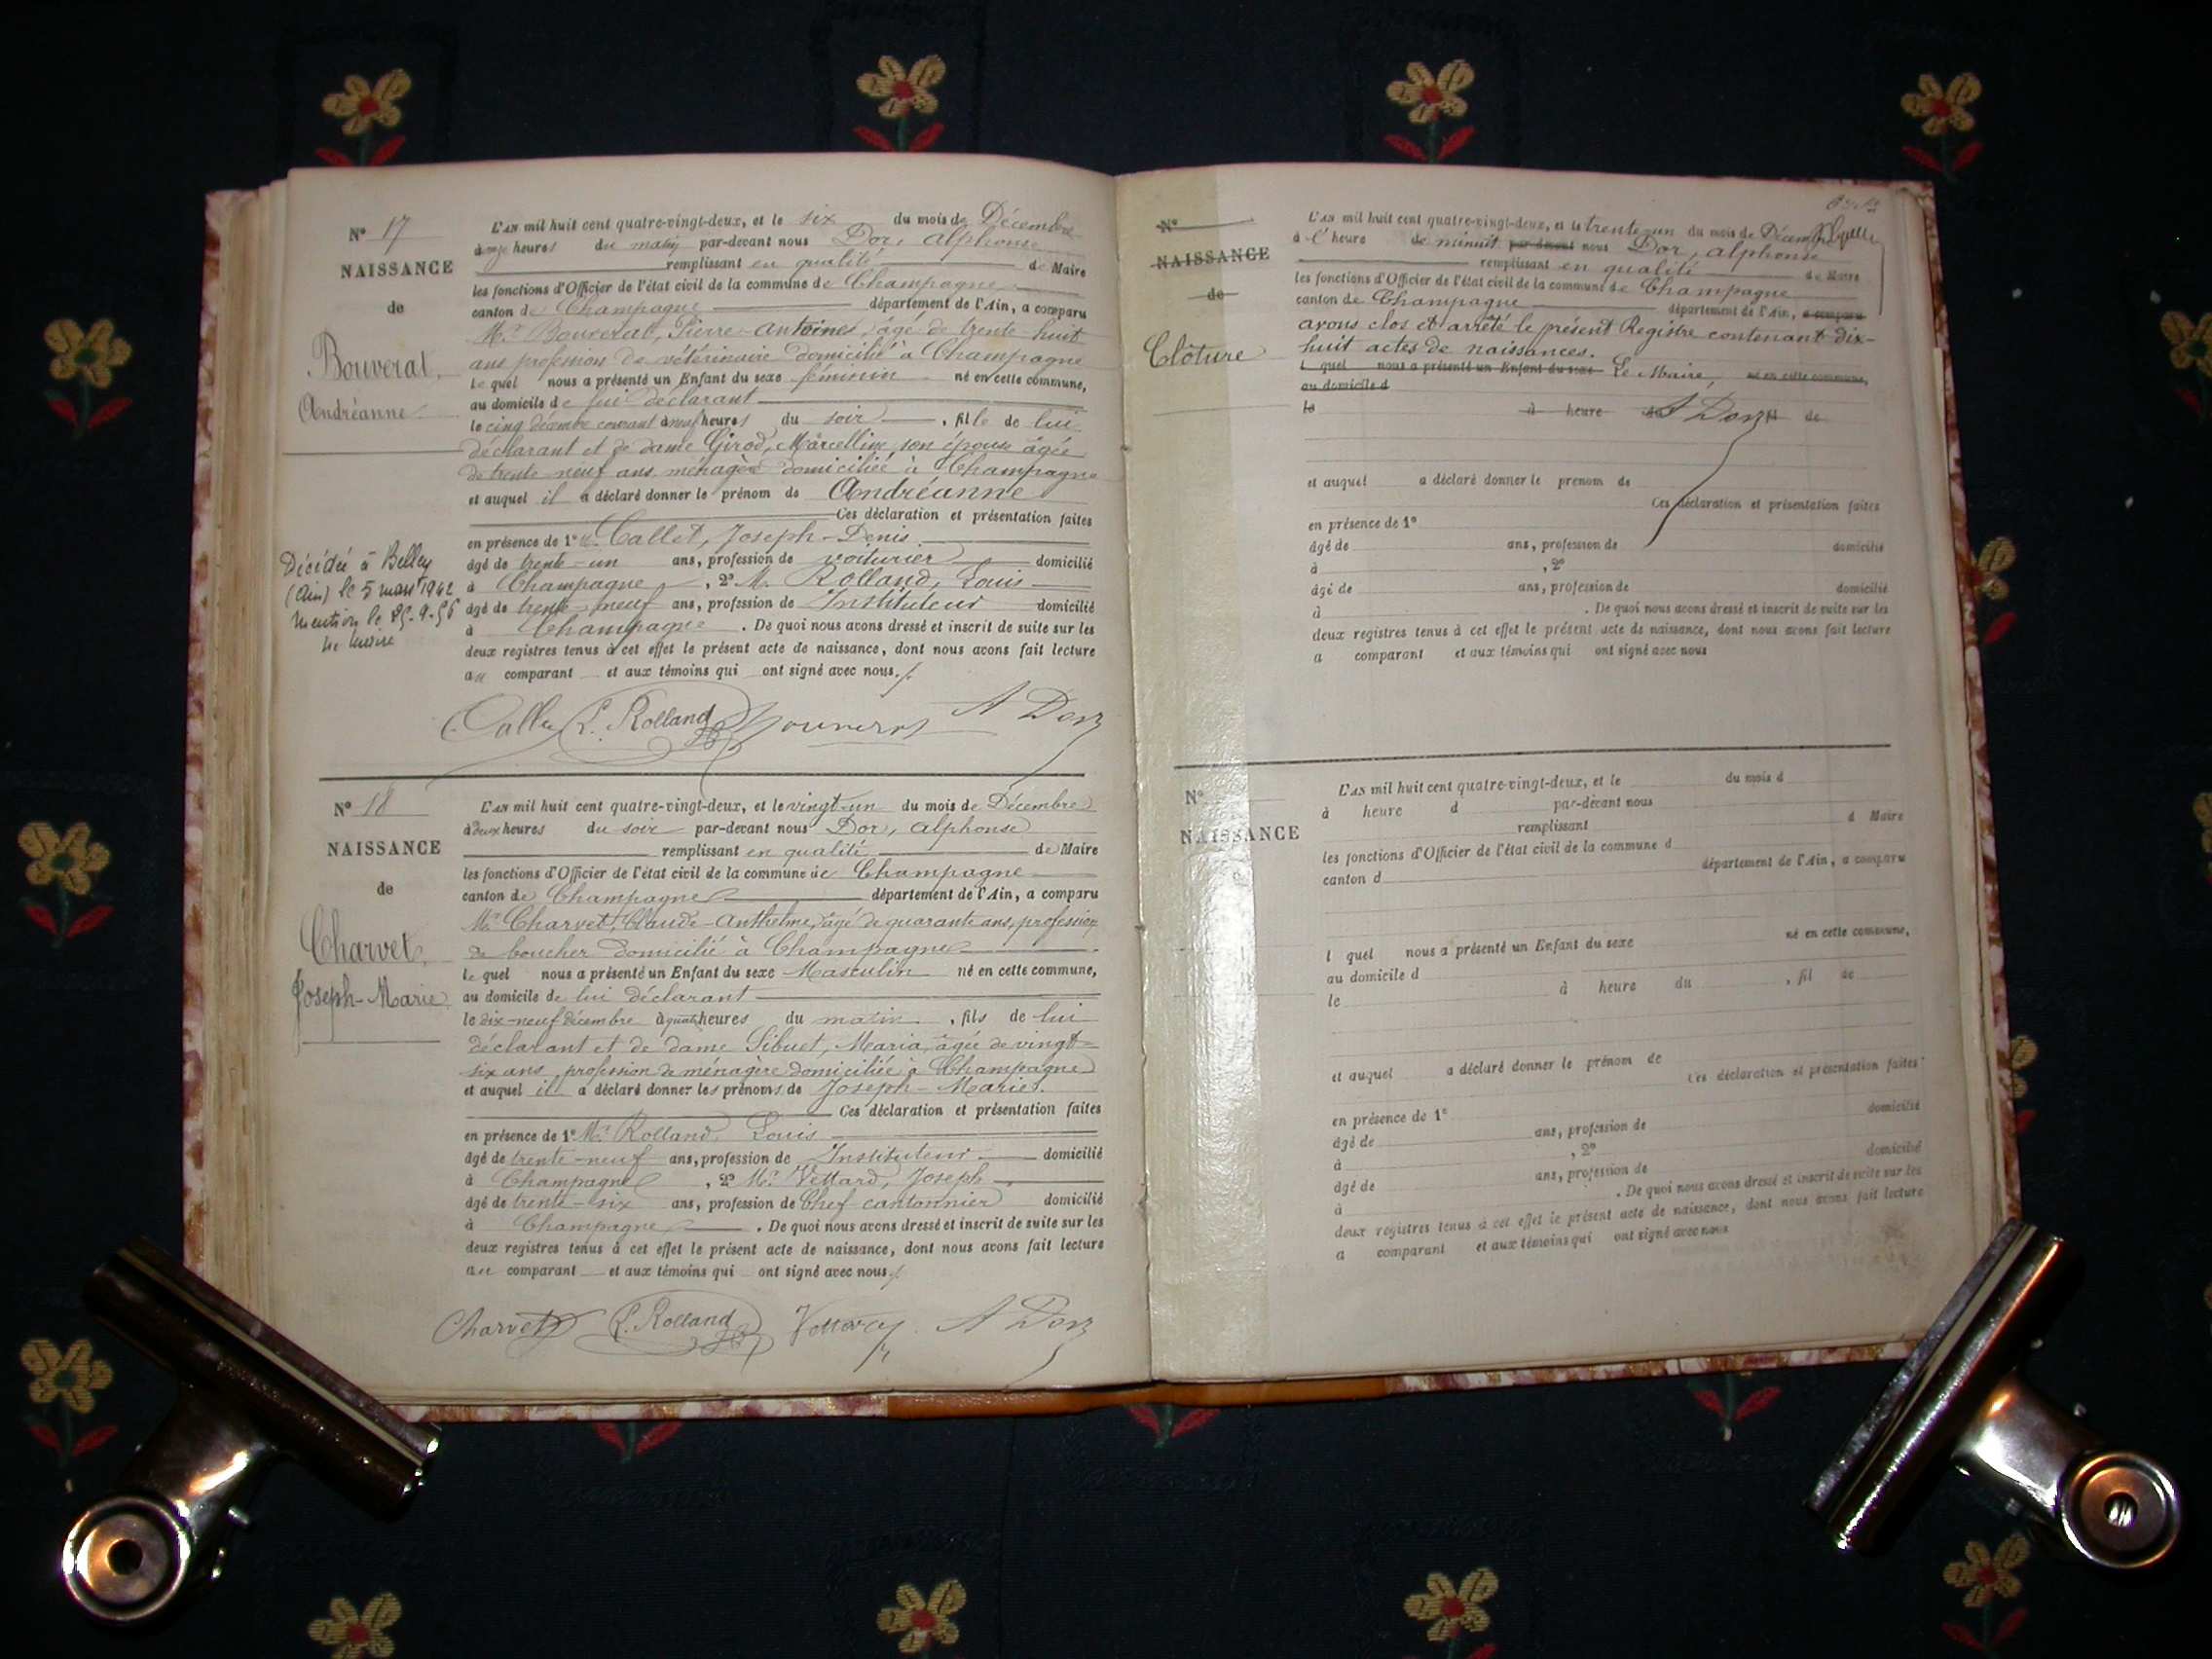 N° 17
NAISSANCE
de
Bouverat
Andréanne
L'AN mil huit cent quatre-vingt-deux, et le six du mois de Décembre
à onze heures du matin par-devant nous Dor, Alphonse
remplissant en qualité de Maire
les fonctions d'Officier de l'état civil de la commune de Champagne
canton de Champagne département de l'Ain, a comparu
Mr Bouverat, Pierre-Antoine, âgé de trente-huit
ans profession de vétérinaire domicilié à Champagne
le quel nous a présenté un Enfant du sexe féminin né en cette commune,
au domicile de lui déclarant
le cinq décembre courant à neuf heures du soir, fille de lui
déclarant et de dame Girod, Marcelline son épouse âgée
de trente neuf ans ménagère domiciliée à Champagne
et auquel il a déclaré donner le prénom de Andréanne
Ces déclaration et présentation faites
en présence de 1° M. Callet, Joseph-Denis
âgé de trente-un ans, profession de voiturier domicilié
à Champagne, 2° M. Rolland, Louis
âgé de trente neuf ans, profession de Instituteur domicilié
à Champagne. De quoi nous avons dressé et inscrit de suite sur les
deux registres tenus à cet effet le présent acte de naissance, dont nous avons fait lecture
au comparant et aux témoins qui ont signé avec nous.
Décédée à Belley
(Ain) le 5 mars 1942
Mention le
Le Maire
Callet L. Rolland A Dor
N° 18
NAISSANCE
de
Charvet
Joseph-Marie
L'AN mil huit cent quatre-vingt-deux, et le vingt-un du mois de Décembre
à deux heures du soir par-devant nous Dor, Alphonse
remplissant en qualité de Maire
les fonctions d'Officier de l'état civil de la commune de Champagne
canton de Champagne département de l'Ain, a comparu
Mr Charvet, Claude-Anthelme, âgé de quarante ans, profession
de boucher domicilié à Champagne
le quel nous a présenté un Enfant du sexe Masculin né en cette commune,
au domicile de lui déclarant
le dix-neuf décembre à quatre heures du matin, fils de lui
déclarant et de dame Sibuet, Maria, âgée de vingt-
six ans, profession de ménagère domiciliée à Champagne
et auquel il a déclaré donner les prénoms de Joseph-Marie.
Ces déclaration et présentation faites
en présence de 1° Mr Rolland Louis
âgé de trente-neuf ans, profession de Instituteur domicilié
à Champagne, 2° Mr Vettard, Joseph
âgé de trente-six ans, profession de Chef cantonnier domicilié
à Champagne. De quoi nous avons dressé et inscrit de suite sur les
deux registres tenus à cet effet le présent acte de naissance, dont nous avons fait lecture
au comparant et aux témoins qui ont signé avec nous.
Charvet L. Rolland Vettard A Dor
N°
NAISSANCE
de
Clôture
L'AN mil huit cent quatre-vingt-deux, et le trente-un du mois de Décembre
à l'heure de minuit par-devant nous Dor, Alphonse
remplissant en qualité de Maire
les fonctions d'Officier de l'état civil de la commune de Champagne
canton de Champagne département de l'Ain, a comparu
avons clos et arrêté le présent Registre contenant dix-
huit actes de naissances.
l quel nous a présenté un Enfant du sexe Le Maire, né en cette commune,
au domicile d
le à heure du A Dor fil de
et auquel a déclaré donner le prénom de
Ces déclaration et présentation faites
en présence de 1°
âgé de ans, profession de domicilié
à , 2°
âgé de ans, profession de domicilié
à . De quoi nous avons dressé et inscrit de suite sur les
deux registres tenus à cet effet le présent acte de naissance, dont nous avons fait lecture
a comparant et aux témoins qui ont signé avec nous
N°
NAISSANCE
L'AN mil huit cent quatre-vingt-deux, et le du mois d
à heure d par-devant nous
remplissant d Maire
les fonctions d'Officier de l'état civil de la commune d
canton d département de l'Ain, a comparu
l quel nous a présenté un Enfant du sexe né en cette commune,
au domicile d
le à heure du , fil de
et auquel a déclaré donner le prénom de
Ces déclaration et présentation faites
en présence de 1°
âgé de ans, profession de domicilié
à , 2°
âgé de ans, profession de domicilié
à . De quoi nous avons dressé et inscrit de suite sur les
deux registres tenus à cet effet le présent acte de naissance, dont nous avons fait lecture
a comparant et aux témoins qui ont signé avec nous